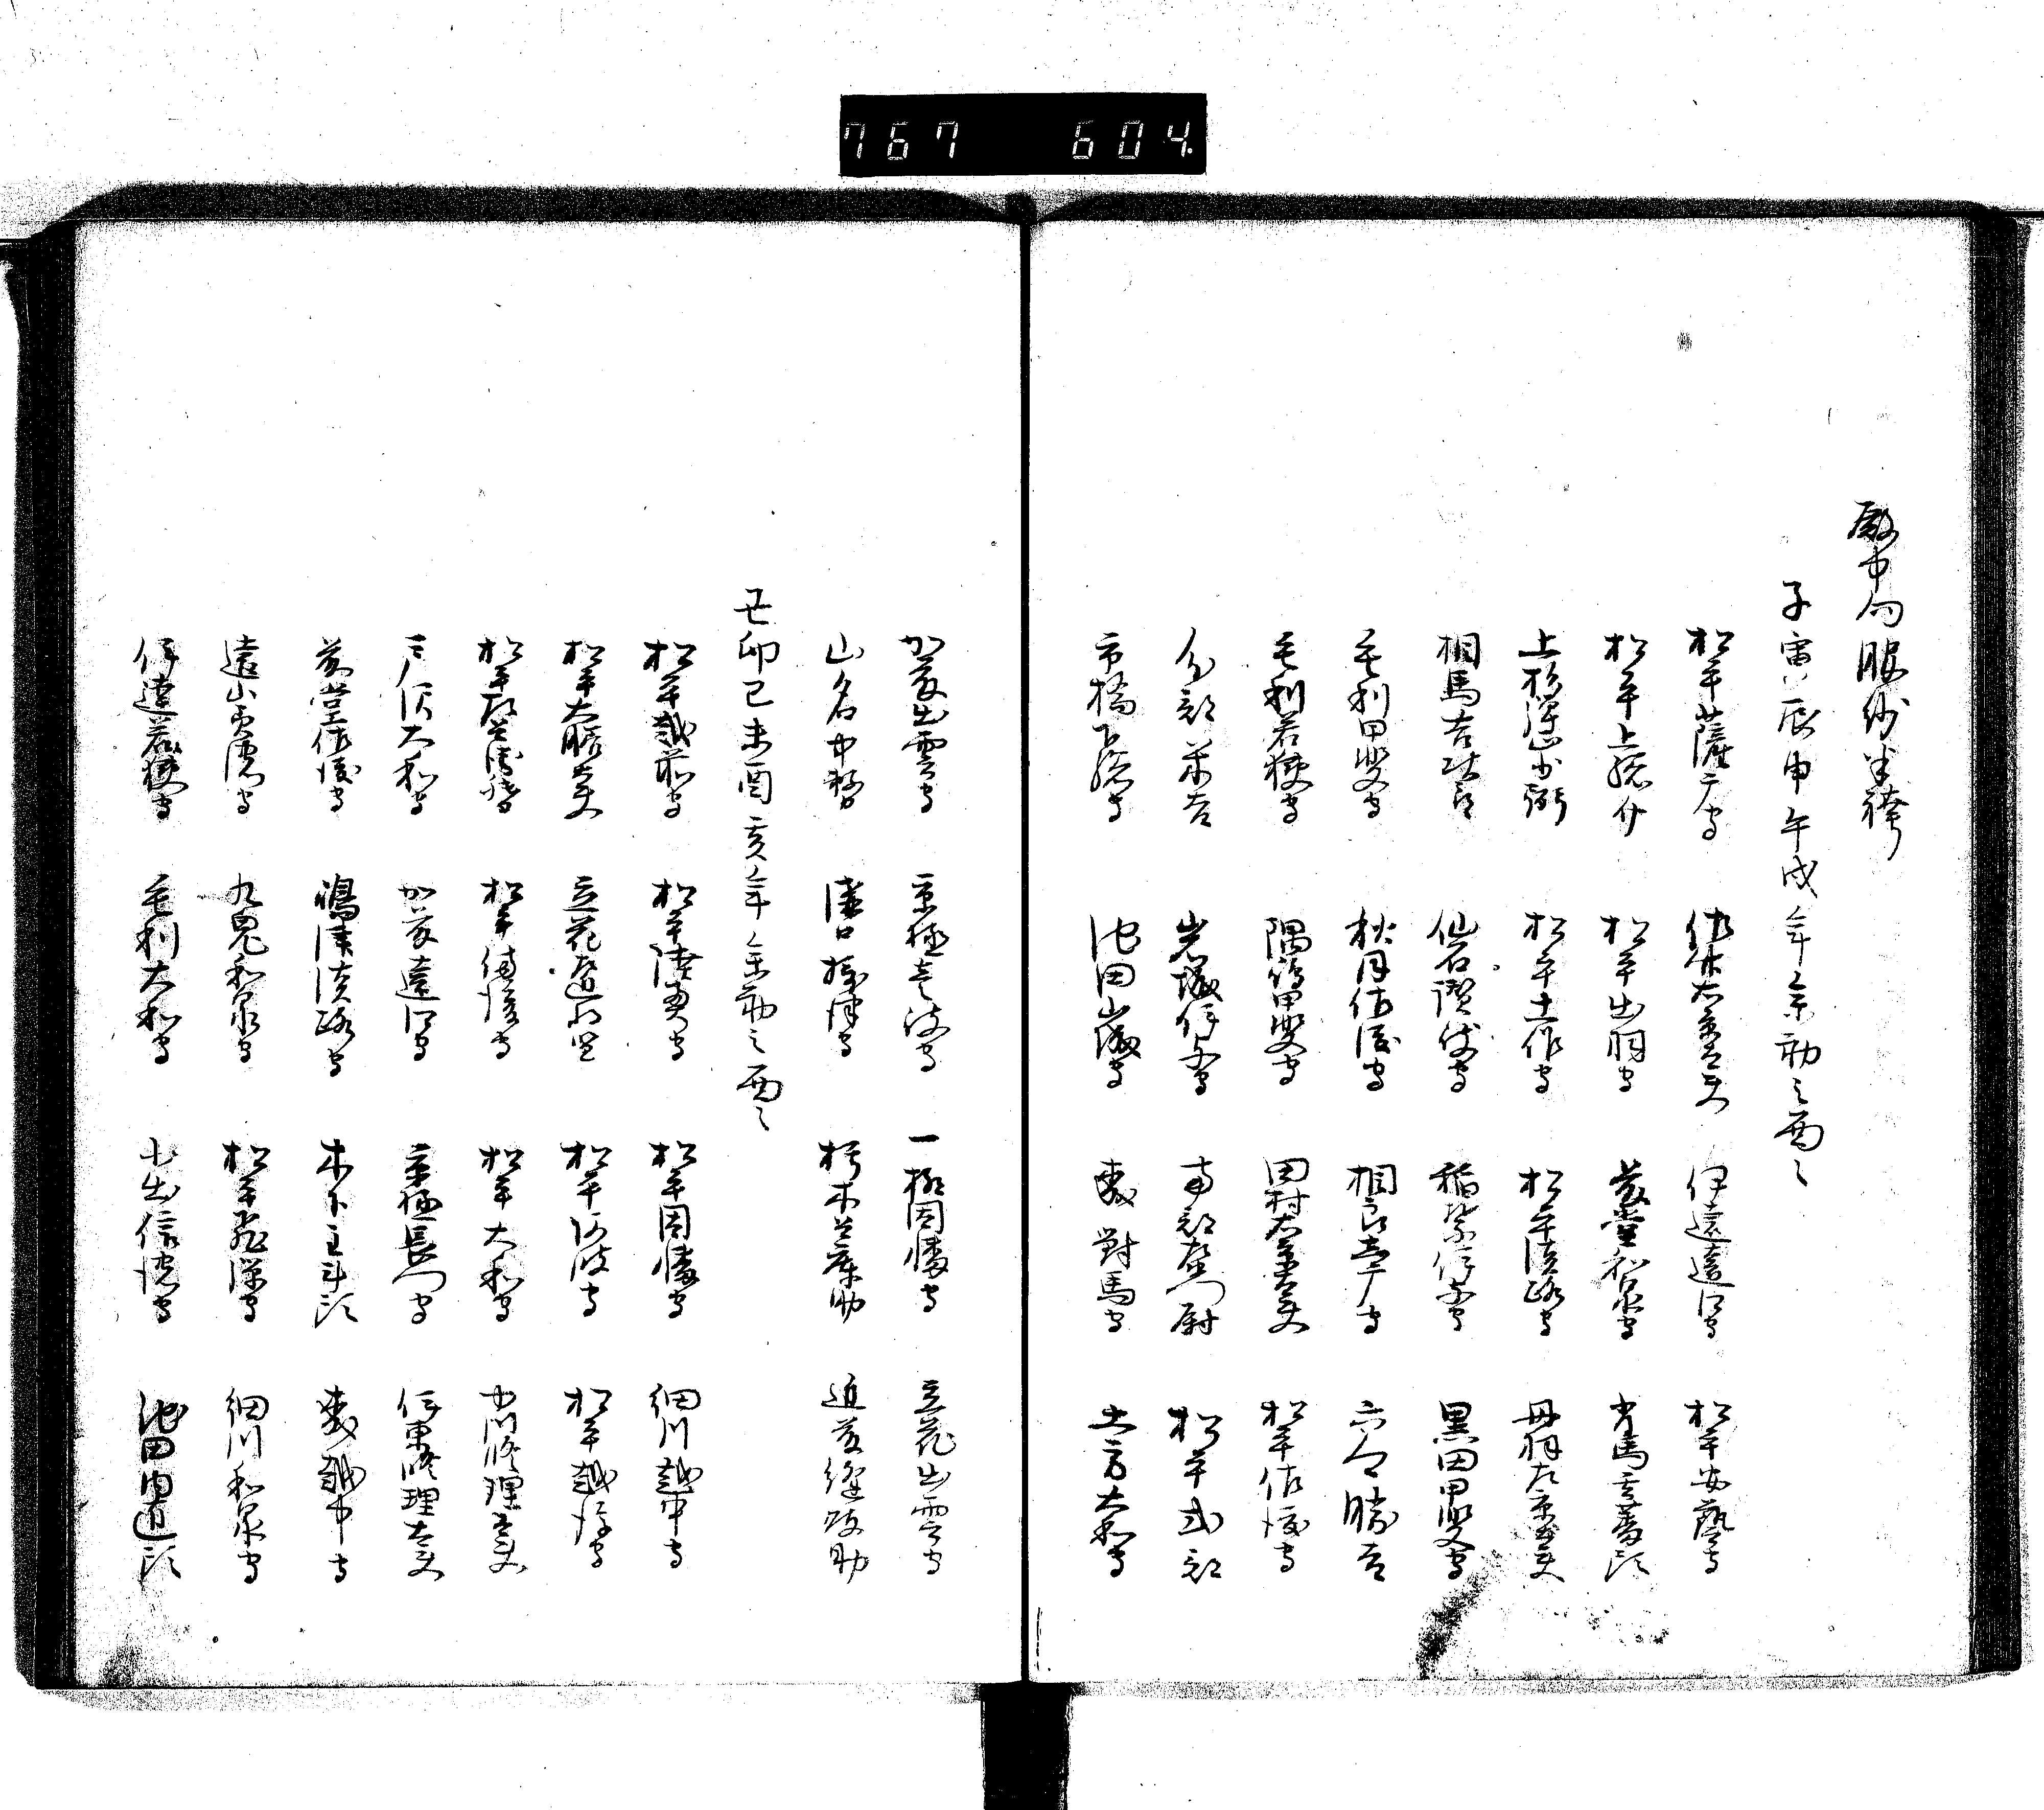 767 604
殿中向服紗半袴
子寅辰申午戌年参勤之面々
松平薩广守 佐竹右京大夫 伊達遠江守 松平安藝守
松平上総介 松平出羽守 藤堂和泉守 有馬玄蕃頭
上杉弾正少弼 松平土佐守 松平淡路守 丹羽左京大夫
相馬吉次郎 仙石讃岐守 稲葉伊予守 黒田甲斐守
毛利甲斐守 秋月佐渡守 相良壱岐守 六郷勝吉
毛利若狭守 鍋嶋甲斐守 田村右京大夫 松平佐渡守
分部米吉 岩城伊予守 南部左衛門尉 松平式部
市橋下総守 池田山城守 森對馬守 土方大和守
加藤出雲守 京極壱岐守 一柳因幡守 立花出雲守
山名中務 溝口摂津守 朽木兵庫助 近藤縫殿助
丑卯巳未酉亥年参勤之面々
松平越前守 松平陸奥守 松平因幡守 細川越中守
松平大膳大夫 立花左近将監 松平阿波守 松平越後守
松平左兵衛督 松平備後守 松平大和守 中川修理大夫
戸沢大和守 加藤遠江守 京極長門守 伊東修理大夫
藤堂佐渡守 嶋津淡路守 木下主計頭 森越中守
遠山美濃守 九鬼和泉守 松平飛騨守 細川和泉守
伊達若狭守 毛利大和守 小出信濃守 池田内匠頭